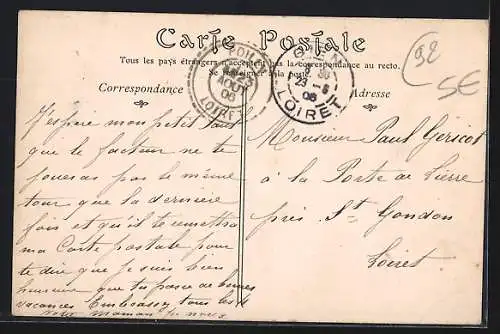 Carte Postale
Tous les pays étrangers n'acceptent pas la correspondance au recto.
Se renseigner à la poste
Correspondance
Adresse
J'espère mon petit Paul
que le facteur ne te
jouera pas le même
tour que la dernière
fois et qu'il te remettra
ma Carte postale pour
te dire que je suis bien
heureuse que tu passe de bonnes
vacances Embrassez tous les 4
votre maman
Monsieur Paul
à la Porte de Pierre
près St Gondon
Loiret
LOIRET
GIEN
LOIRET
92
5E